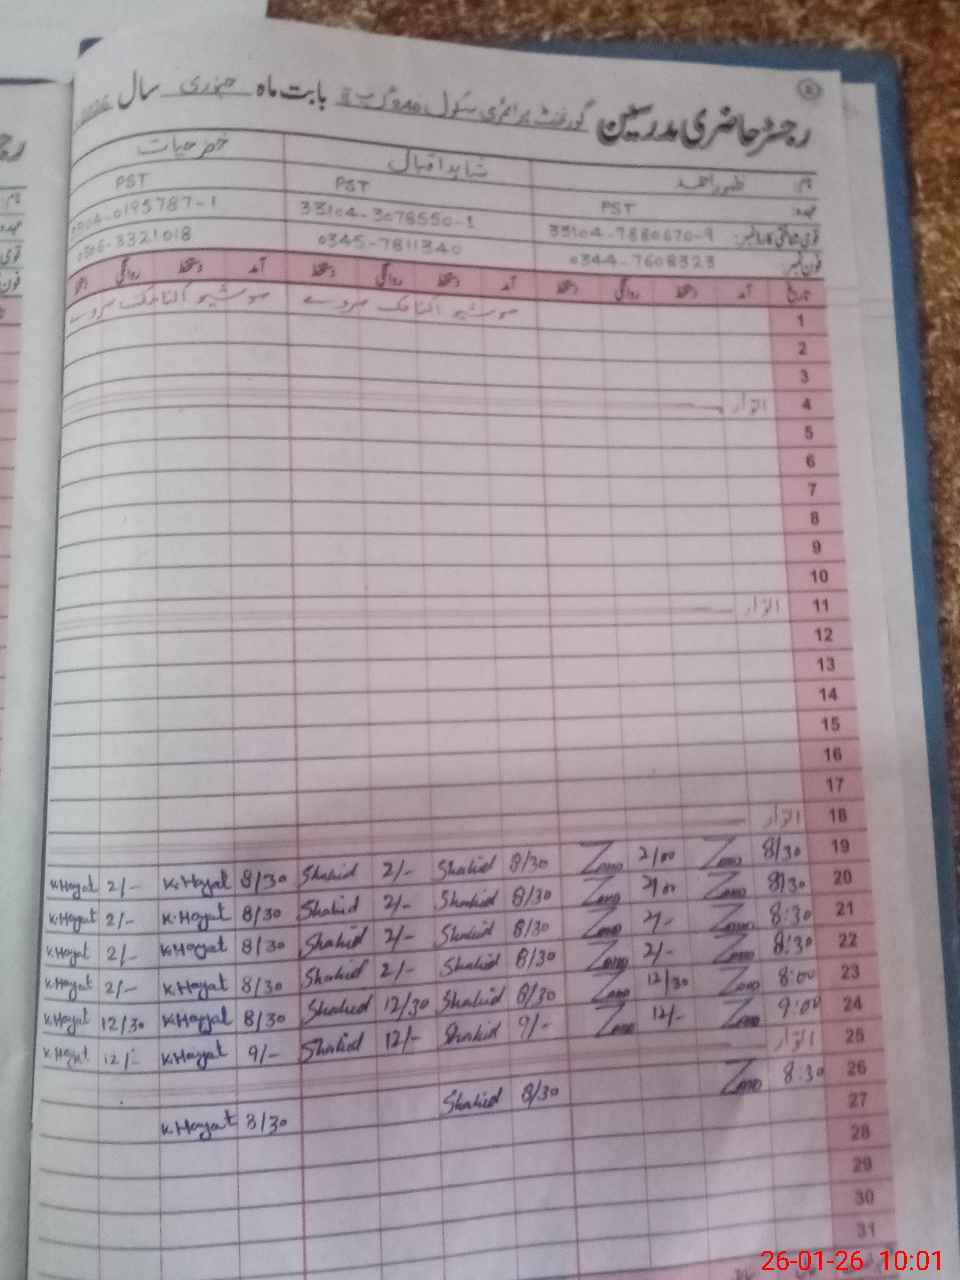 رجسٹر حاضری مدرسین گورنمنٹ پرائمری سکول بابت ماہ جنوری سال
نام ظہور احمد شاہد اقبال خضر حیات
عہدہ PST PST PST
قومی شناختی کارڈ نمبر 33104-7880670-9 33104-3078550-1 0195787-1
فون نمبر 0344-7608323 0345-7811340 0306-3321018
تاریخ آمد دستخط روانگی دستخط آمد دستخط روانگی دستخط آمد دستخط روانگی
1
2
3
4 اتوار
5
6
7
8
9
10
11 اتوار
12
13
14
15
16
17
18 اتوار
19 8/30 2/00 Shahid 8/30 Shahid 2/- K.Hayat 8/30 K.Hayat 2/-
20 8/30 2/00 Shahid 8/30 Shahid 2/- K.Hayat 8/30 K.Hayat 2/-
21 8:30 2/- Shahid 8/30 Shahid 2/- K.Hayat 8/30 K.Hayat 2/-
22 8:30 2/- Shahid 8/30 Shahid 2/- K.Hayat 8/30 K.Hayat 2/-
23 8:00 12/30 Shahid 8/30 Shahid 12/30 K.Hayat 8/30 K.Hayat 12/30
24 9:00 12/- Shahid 9/- Shahid 12/- K.Hayat 9/- K.Hayat 12/-
25 اتوار
26 8:30 Shahid 8/30 K.Hayat 8/30
27
28
29
30
31
26-01-26 10:01